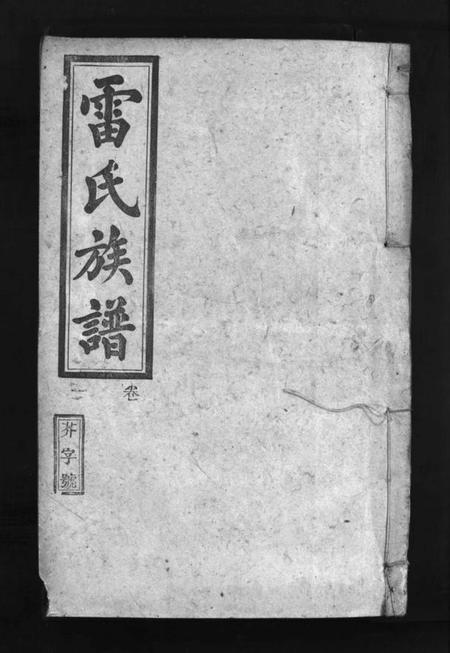 雷氏族譜
卷二
芥字號